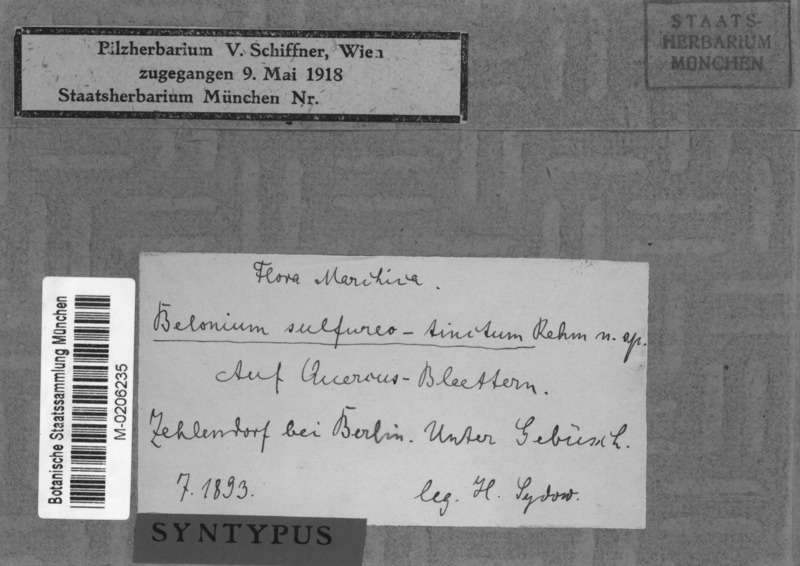 Pilzherbarium V. Schiffner, Wien
zugegangen 9. Mai 1918
Staatsherbarium München Nr.
STAATS-
HERBARIUM
MÜNCHEN
Flora Marchica.
Belonium sulfureo-tinctum Rehm n. sp.
Auf Quercus-Blaettern.
Zehlendorf bei Berlin. Unter Gebüsch.
7. 1893.
leg. H. Sydow.
Botanische Staatssammlung München
M-0206235
SYNTYPUS